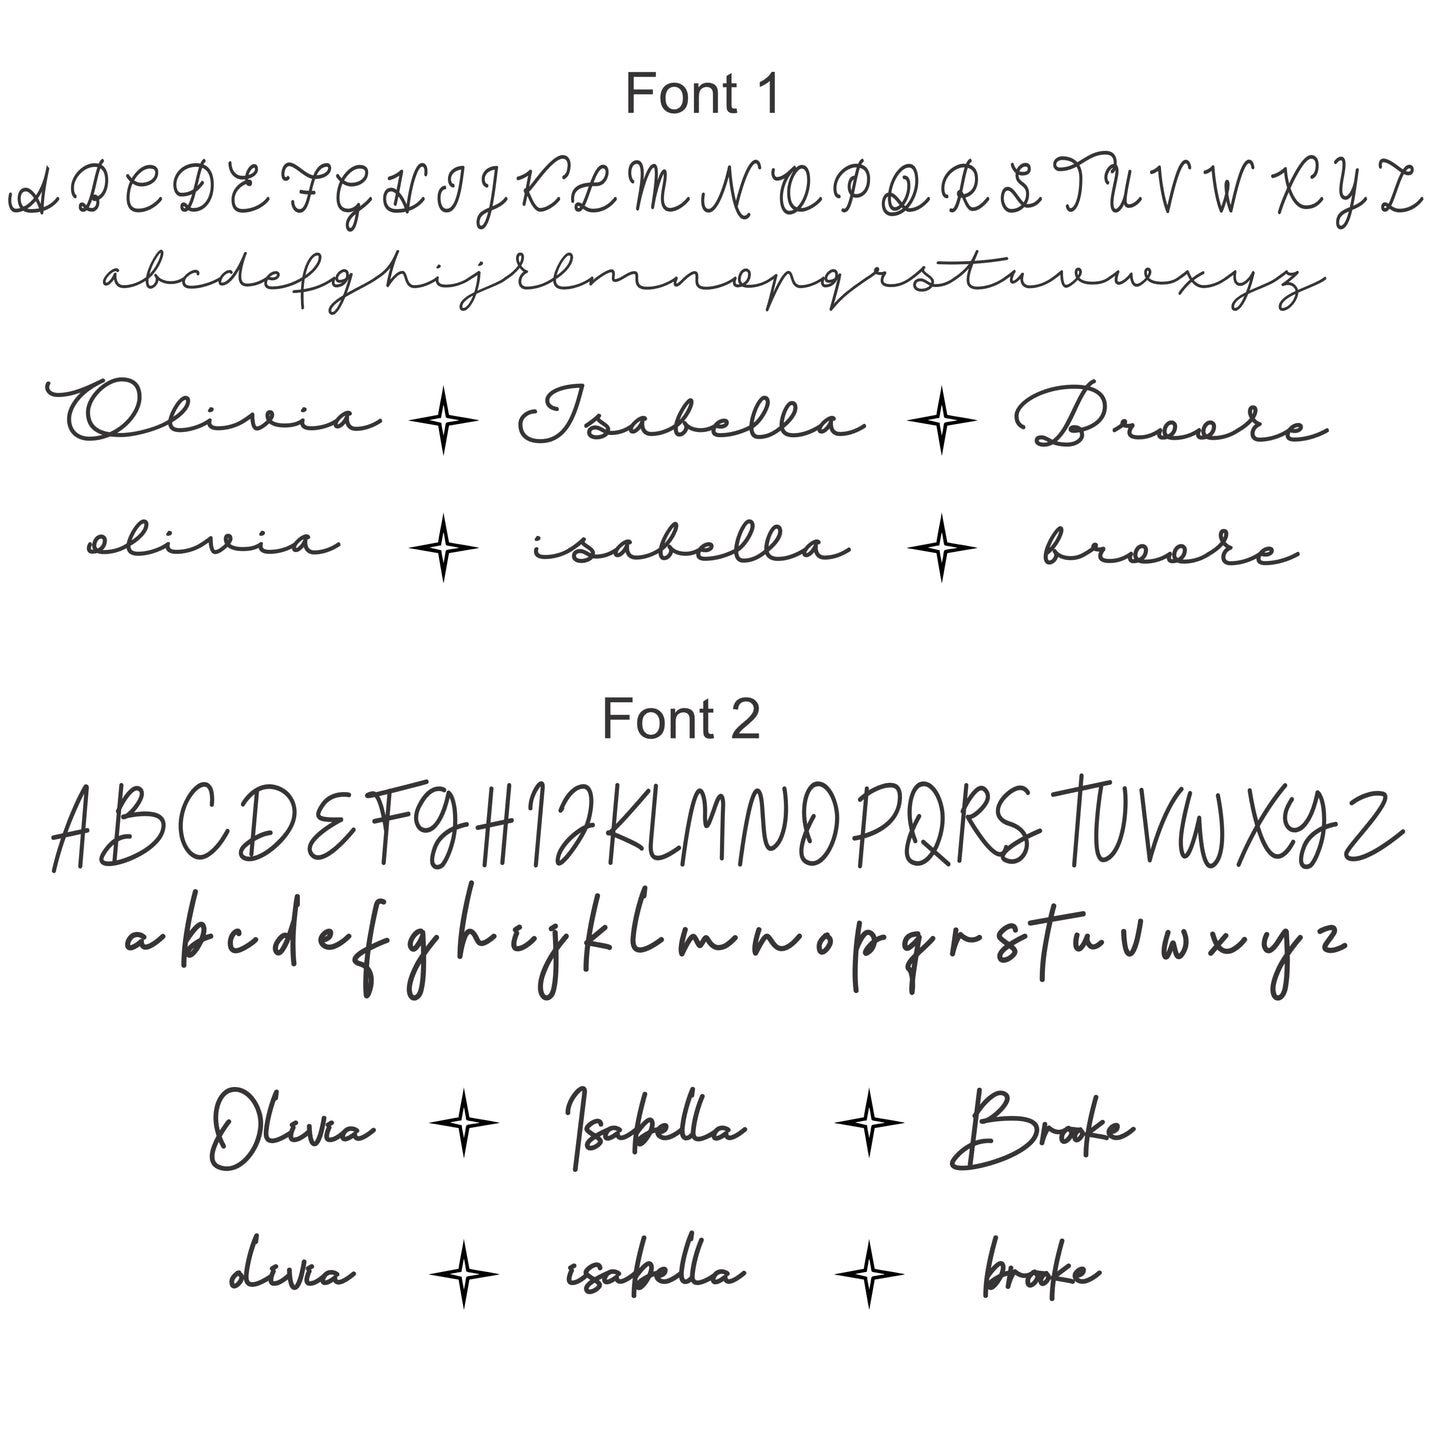 Font 1
A B C D E F G H I J K L M N O P Q R S T U V W X Y Z
abcdefghijklmnopqrstuvwxyz
Olivia Isabella Brooke
olivia isabella brooke
Font 2
A B C D E F G H I J K L M N O P Q R S T U V W X Y Z
a b c d e f g h i j k l m n o p q r s t u v w x y z
Olivia Isabella Brooke
olivia isabella brooke